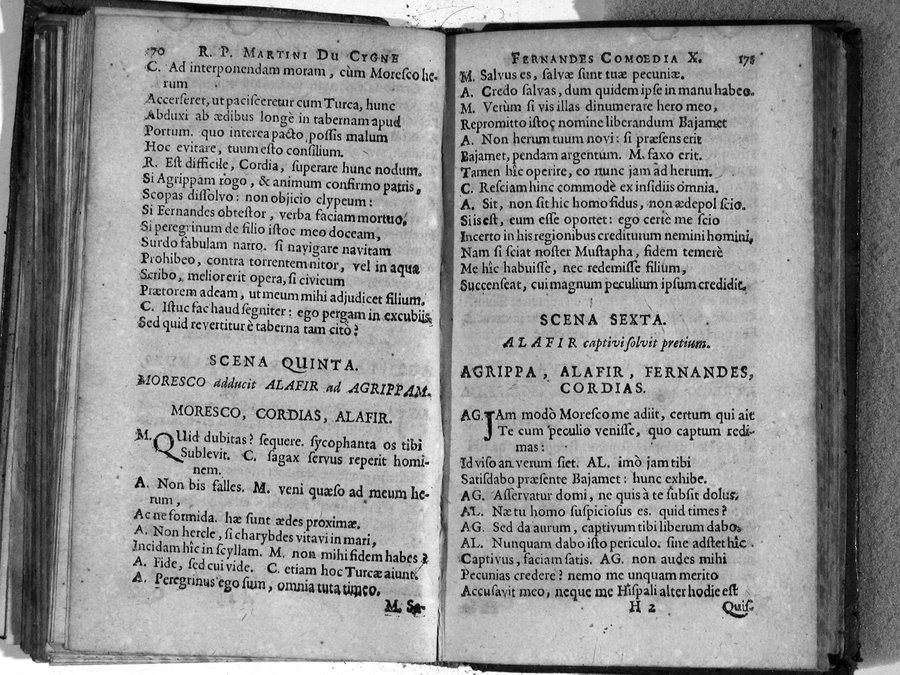 170 R. P. MARTINI DU CYGNE
C. Ad interponendam moram, cùm Moresco he-
rum
Accerseret, ut pacisceretur cum Turca, hunc
Abduxi ab ædibus longè in tabernam apud
Portum. quo interea pacto possis malum
Hoc evitare, tuum esto consilium.
R. Est difficile, Cordia, superare hunc nodum.
Si Agrippam rogo, & animum confirmo patris,
Scopas dissolvo: non objicio clypeum:
Si Fernandes obtestor, verba faciam mortuo.
Si peregrinum de filio istoc meo doceam,
Surdo fabulam narro. si navigare navitam
Prohibeo, contra torrentem nitor, vel in aqua
Scribo, melior erit opera, si civicum
Prætorem adeam, ut meum mihi adjudicet filium.
C. Istuc fac haud segniter: ego pergam in excubiis.
Sed quid revertitur è taberna tam citò?
SCENA QUINTA.
MORESCO adducit ALAFIR ad AGRIPPAM.
MORESCO, CORDIAS, ALAFIR.
M. QUid dubitas? sequere. sycophanta os tibi
Sublevit. C. sagax servus reperit homi-
nem.
A. Non bis falles. M. veni quæso ad meum he-
rum,
Ac ne formida. hæ sunt ædes proximæ.
A. Non hercle, si charybdes vitavi in mari,
Incidam hîc in scyllam. M. non mihi fidem habes?
A. Fide, sed cui vide. C. etiam hoc Turcæ aiunt.
A. Peregrinus ego sum, omnia tuta timeo.
M. Sa-
FERNANDES COMOEDIA X. 175
M. Salvus es, salvæ sunt tuæ pecuniæ.
A. Credo salvas, dum quidem ipse in manu habeo.
M. Verùm si vis illas dinumerare hero meo,
Repromitto istoc nomine liberandum Bajamet
A. Non herum tuum novi: si præsens erit
Bajamet, pendam argentum. M. faxo erit.
Tamen hîc operire, eo nunc jam ad herum.
C. Resciam hinc commodè ex insidiis omnia.
A. Sit, non sit hic homo fidus, non ædepol scio.
Si is est, eum esse oportet: ego certè me scio
Incerto in his regionibus crediturum nemini homini,
Nam si sciat noster Mustapha, fidem temerè
Me hîc habuisse, nec redemisse filium,
Succenseat, cui magnum peculium ipsum credidit.
SCENA SEXTA.
ALAFIR captivi solvit pretium.
AGRIPPA, ALAFIR, FERNANDES,
CORDIAS.
AG. JAm modò Moresco me adiit, certum qui ait
Te cum peculio venisse, quo captum redi-
mas:
Id viso an verum siet. AL. imò jam tibi
Satisdabo præsente Bajamet: hunc exhibe.
AG. Asservatur domi, ne quis à te subsit dolus.
AL. Næ tu homo suspiciosus es. quid times?
AG. Sed da aurum, captivum tibi liberum dabo.
AL. Nunquam dabo isto periculo. sine adstet hîc
Captivus, faciam satis. AG. non audes mihi
Pecunias credere? nemo me unquam merito
Accusavit meo, neque me Hispali alter hodie est
H 2 Quis-